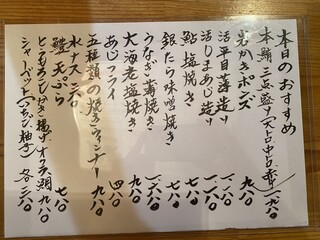 本日のおすすめ
本鮪三点盛り(大トロ中トロ赤身)一九八〇
岩がきポンズ 九八〇
活平目薄造り 一二八〇
活しまあじ造り 一二八〇
鮎塩焼き 七八〇
銀たら味噌焼き 七八〇
うなぎ蒲焼き 一六八〇
大海老塩焼き 九八〇
あじフライ 四八〇
五種類の焼きウィンナー 九八〇
水ナス 三八〇
鱧天ぷら 七八〇
とうもろこしかき揚げ
シャーベット(いちご、柚子)各三八〇